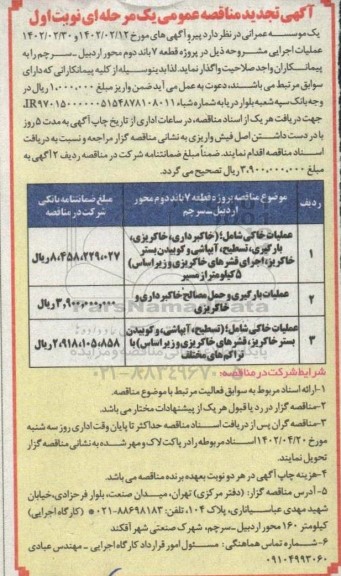 آگهی تجدید مناقصه عمومی یک مرحله ای نوبت اول
یک موسسه عمرانی در نظر دارد پیرو آگهی های مورخ ۱۴۰۲/۰۲/۱۲ و ۱۴۰۲/۰۲/۳۰
عملیات اجرایی مشروحه ذیل در پروژه قطعه ۷ باند دوم محور اردبیل ـ سرچم را به
پیمانکاران واجد صلاحیت واگذار نماید. لذا بدینوسیله از کلیه پیمانکارانی که دارای
سوابق مرتبط می باشند، دعوت به عمل می آید ضمن واریز مبلغ ۱.۰۰۰.۰۰۰ ریال در
وجه بانک سپه شعبه بلوار در یا به شماره شباء IR۹۷۰۱۵۰۰۰۰۰۰۵۱۵۴۸۷۸۱۰۸۰۱۱،
جهت دریافت هر یک از اسناد مناقصه، در ساعات اداری از تاریخ چاپ آگهی به مدت ۵ روز
با در دست داشتن اصل فیش واریزی به نشانی مناقصه گزار مراجعه و نسبت به دریافت
اسناد مناقصه اقدام نمایند. ضمناً مبلغ ضمانتنامه شرکت در مناقصه ردیف ۲ آگهی به
مبلغ ۳.۹۰۰.۰۰۰.۰۰۰ ریال تصحیح می گردد.
ردیف موضوع مناقصه پروژه قطعه ۷ باند دوم محور اردبیل ـ سرچم مبلغ ضمانتنامه بانکی شرکت در مناقصه
۱ عملیات خاکی شامل؛ (خاکبرداری، خاکریزی، بارگیری، تسطیح، آبپاشی و کوبیدن بستر خاکریز، اجرای قشرهای خاکریزی و زیراساس) ۵ کیلومتر از مسیر ۸.۴۵۸.۲۲۹.۰۲۷ ریال
۲ عملیات بارگیری و حمل مصالح خاکبرداری و خاکریزی ۳,۹۰۰,۰۰۰,۰۰۰ ریال
۳ عملیات خاکی شامل؛ (تسطیح، آبپاشی، و کوبیدن بستر خاکریز، قشرهای خاکریزی و زیراساس) با تراکم های مختلف ۲.۹۱۸.۱۰۵.۸۵۸ ریال
شرایط شرکت در مناقصه:
۱-ارائه اسناد مربوط به سوابق فعالیت مرتبط با موضوع مناقصه.
۲-مناقصه گزار در رد یا قبول هر یک از پیشنهادات مختار می باشد.
۳-مناقصه گران پس از دریافت اسناد مناقصه حداکثر تا پایان وقت اداری روز سه شنبه
مورخ ۱۴۰۲/۰۴/۲۰ اسناد مربوطه را در پاکت لاک و مهر شده به نشانی مناقصه گزار
تحویل نمایند.
۴-هزینه چاپ آگهی در هر دو نوبت بعهده برنده مناقصه می باشد.
۵- آدرس مناقصه گزار: (دفتر مرکزی) تهران، میدان صنعت، بلوار فرحزادی، خیابان
شهید مهدی عباسیاناری، پلاک ۱۰۴، تلفن: ۸۸۶۹۸۱۸۳-۰۲۱ * (کارگاه اجرایی)
کیلومتر ۱۶۰ محور اردبیل ـ سرچم، شهرک صنعتی شهر آقکند
۶-شماره تماس هماهنگی: مسئول امور قرارداد کارگاه اجرایی - مهندس عبادی
۰۹۱۰۴۹۹۳۰۶۰